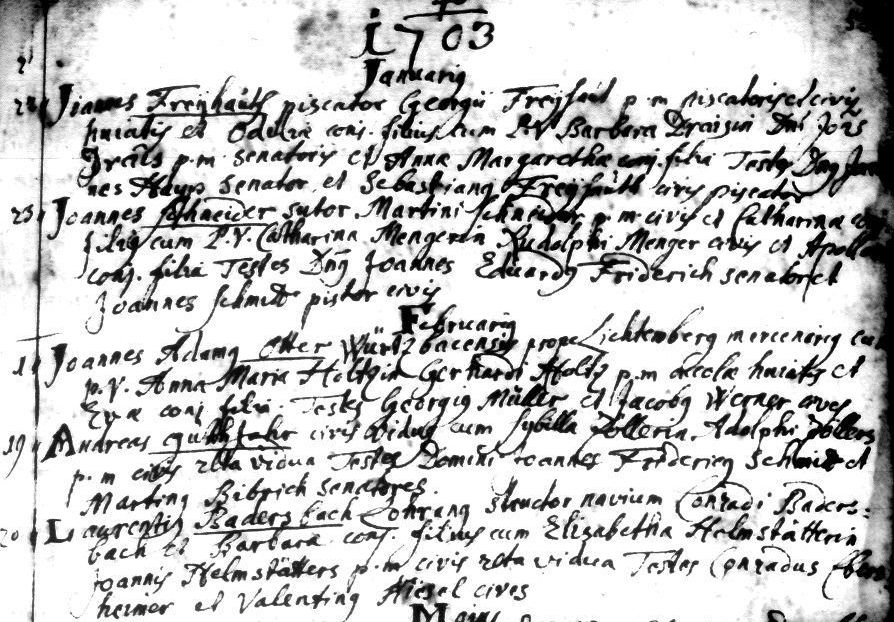 1703
Januarius
22 Joannes Freÿhaüth piscator Georgii Freÿhaüt p.m. piscatoris et civis
huiatis et Odiliæ conj. filius cum P.V. Barbara Draisin Dni Jois
Drais p.m. senatoris et Annæ Margarethæ conj. filia Testes Dng Joan
nes Senator et Sebastiang Freÿhaüth civis piscator
23 Joannes Schneider sutor Martini Schneider p.m. civis et Catharinæ con
filiq cum P.V. Catharina Mengerin Rudolphi Menger civis et Apollo
conj. filia Testes Dng Joannes Eduardg Friderich senator et
Joannes Schmidt pistor civis
Februarig
Joannes Adamg Otter Würtzbacensis prope Lichtemberg mercenarig cu
p.V. Anna Maria Holtzin Gerhardi Holtz p.m. accolæ huiatis et
Evæ conj. filia. Testes Georgig Müller et Jacobg Werner cives
19 Andreas civis vidug cum Sybilla Zöllerin, Adolphi Zöllers
p.m. civis rlta vidua Testes Domini Joannes Fridericg Schmidt et
Marting Bibrich senatores.
20 Laurentig Badersbach Lohrang structor navium Conradi Baders=
bach et Barbaræ conj. filius cum Elizabetha Helmstätterin
Joannis Helmstätters p.m. civis rlta vidua Testes Conradus Ebers
heimer et Valenting Hiesel cives
Majus